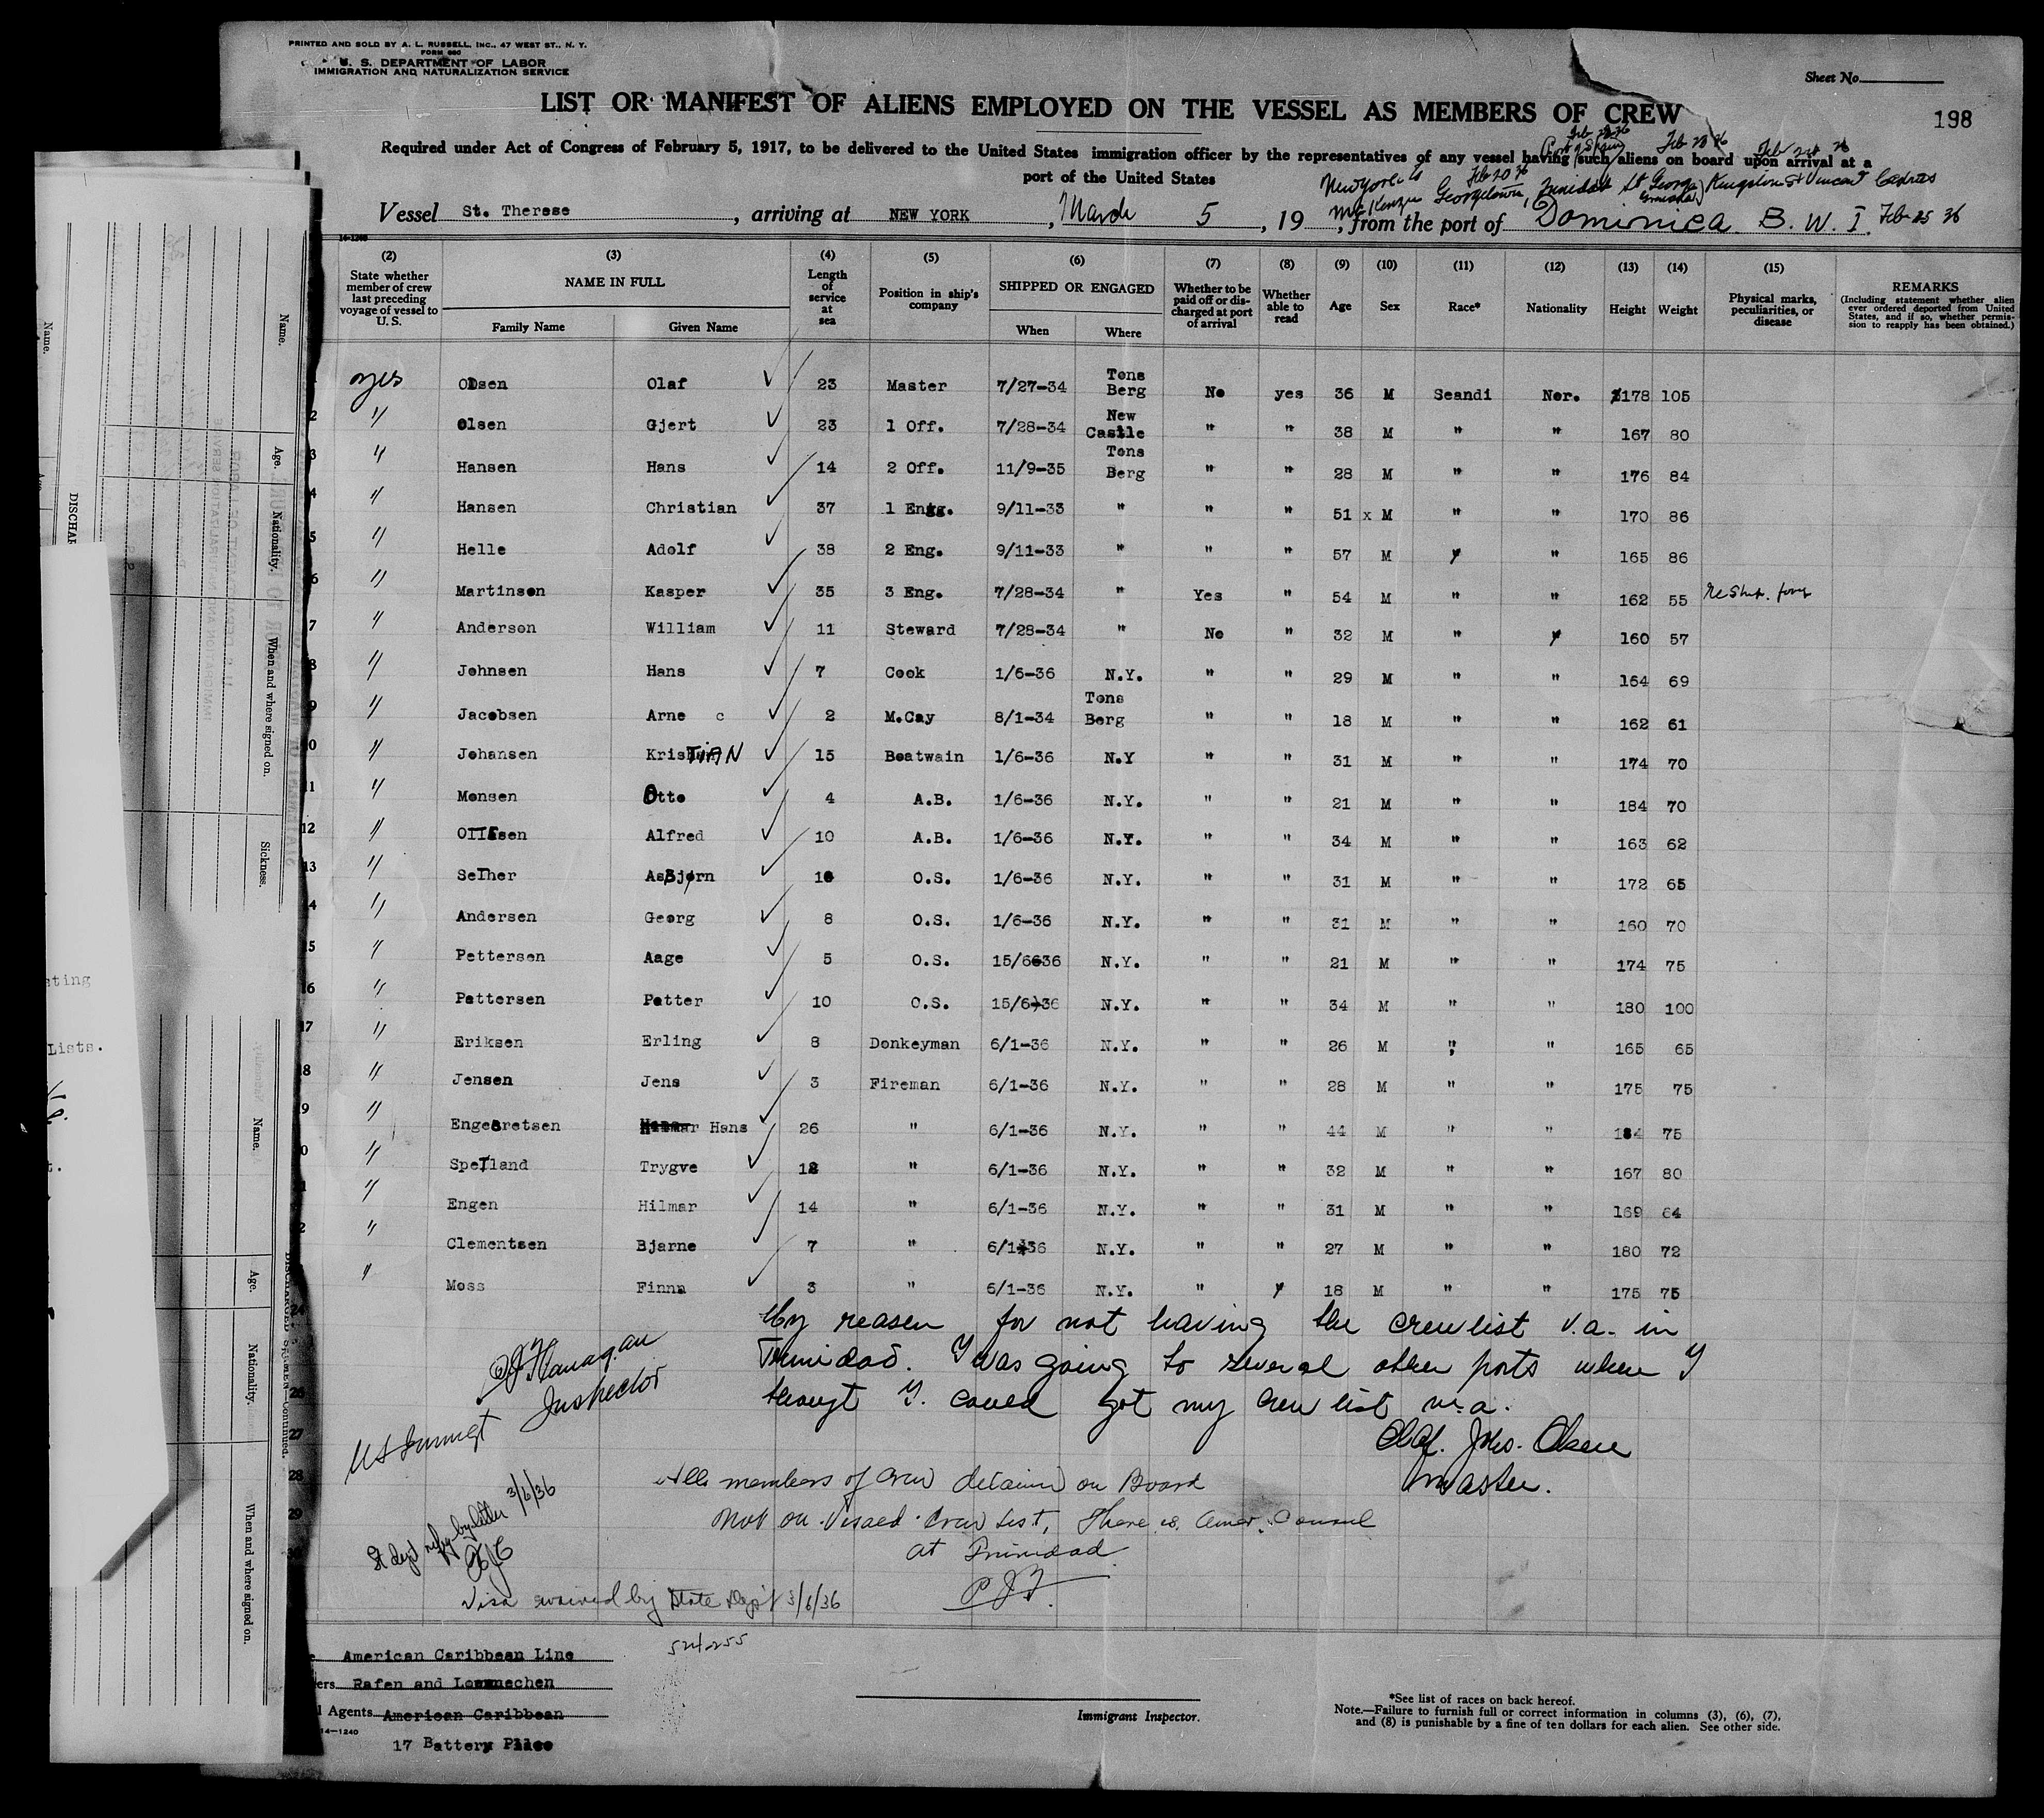 PRINTED AND SOLD BY A. L. RUSSELL, INC., 47 WEST ST., N. Y.
FORM 680
U. S. DEPARTMENT OF LABOR
IMMIGRATION AND NATURALIZATION SERVICE
Sheet No.
LIST OR MANIFEST OF ALIENS EMPLOYED ON THE VESSEL AS MEMBERS OF CREW
198
Required under Act of Congress of February 5, 1917, to be delivered to the United States immigration officer by the representatives of any vessel having such aliens on board upon arrival at a
port of the United States
Port of Spain Feb 23 36 Feb 24 36
New York Feb 20 36
McKenzie Georgetown, Trinidad St George Grenada Kingston St Vincent Cedros
Vessel St. Therese, arriving at NEW YORK, March 5, 19, from the port of Dominica B. W. I. Feb 25 36
(2) (3) (4) (5) (6) (7) (8) (9) (10) (11) (12) (13) (14) (15)
State whether member of crew last preceding voyage of vessel to U. S. NAME IN FULL Family Name Given Name Length of service at sea Position in ship's company SHIPPED OR ENGAGED When Where Whether to be paid off or discharged at port of arrival Whether able to read Age Sex Race* Nationality Height Weight Physical marks, peculiarities, or disease REMARKS (Including statement whether alien ever ordered deported from United States, and if so, whether permission to reapply has been obtained.)
yes Olsen Olaf 23 Master 7/27-34 Tons Berg No yes 36 M Scandi Nor. 178 105
2 " Olsen Gjert 23 1 Off. 7/28-34 New Castle " " 38 M " " 167 80
3 " Hansen Hans 14 2 Off. 11/9-35 Tons Berg " " 28 M " " 176 84
4 " Hansen Christian 37 1 Eng. 9/11-33 " " " 51 x M " " 170 86
5 " Helle Adolf 38 2 Eng. 9/11-33 " " " 57 M " " 165 86
6 " Martinsen Kasper 35 3 Eng. 7/28-34 " Yes " 54 M " " 162 55
7 " Anderson William 11 Steward 7/28-34 " No " 32 M " " 160 57
8 " Johnsen Hans 7 Cook 1/6-36 N.Y. " " 29 M " " 164 69
9 " Jacobsen Arne c 2 M.Cay 8/1-34 Tons Berg " " 18 M " " 162 61
0 " Johansen KrisTIAN 15 Boatwain 1/6-36 N.Y " " 31 M " " 174 70
11 " Monsen Otto 4 A.B. 1/6-36 N.Y. " " 21 M " " 184 70
12 " Ottesen Alfred 10 A.B. 1/6-36 N.Y. " " 34 M " " 163 62
13 " SeTher AsBjørn 10 O.S. 1/6-36 N.Y. " " 31 M " " 172 65
4 " Andersen Georg 8 O.S. 1/6-36 N.Y. " " 31 M " " 160 70
5 " Pettersen Aage 5 O.S. 15/6-36 N.Y. " " 21 M " " 174 75
6 " Pettersen Petter 10 O.S. 15/6-36 N.Y. " " 34 M " " 180 100
17 " Eriksen Erling 8 Donkeyman 6/1-36 N.Y. " " 26 M " " 165 65
8 " Jensen Jens 3 Fireman 6/1-36 N.Y. " " 28 M " " 175 75
9 " Engebretsen Hans 26 " 6/1-36 N.Y. " " 44 M " " 184 75
0 " SpeTland Trygve 12 " 6/1-36 N.Y. " " 32 M " " 167 80
1 " Engen Hilmar 14 " 6/1-36 N.Y. " " 31 M " " 169 64
2 " Clementsen Bjarne 7 " 6/1-36 N.Y. " " 27 M " " 180 72
" Moss Finn 3 " 6/1-36 N.Y. " " 18 M " " 175 75
My reasen for not having the crewlist v.a. in
Trinidad. I was going to several other ports where I
thougt I. could got my crew list v.a.
Olaf. Johs. Olsen
Master.
PJ Flanagan
Inspector
US Immigt
All members of crew detained on Board
Not on Visaed Crew List, There is Amer. Consul
at Trinidad
P J F.
St dept notfy by letter 3/6/36
Visa waived by State Dep't 3/6/36
24
26
27
28
29
American Caribbean Line
524-255
ers Rafen and Loennechen
l Agents American Caribbean
14-1240
17 Battery Place
Immigrant Inspector.
*See list of races on back hereof.
Note.—Failure to furnish full or correct information in columns (3), (6), (7),
and (8) is punishable by a fine of ten dollars for each alien. See other side.
Name.
Age.
Nationality.
When and where signed on.
Sickness.
DISCHAR
Lists.
Name.
Age.
Nationality.
When and where signed on.
DISCHARGED SEAMEN—Continued.